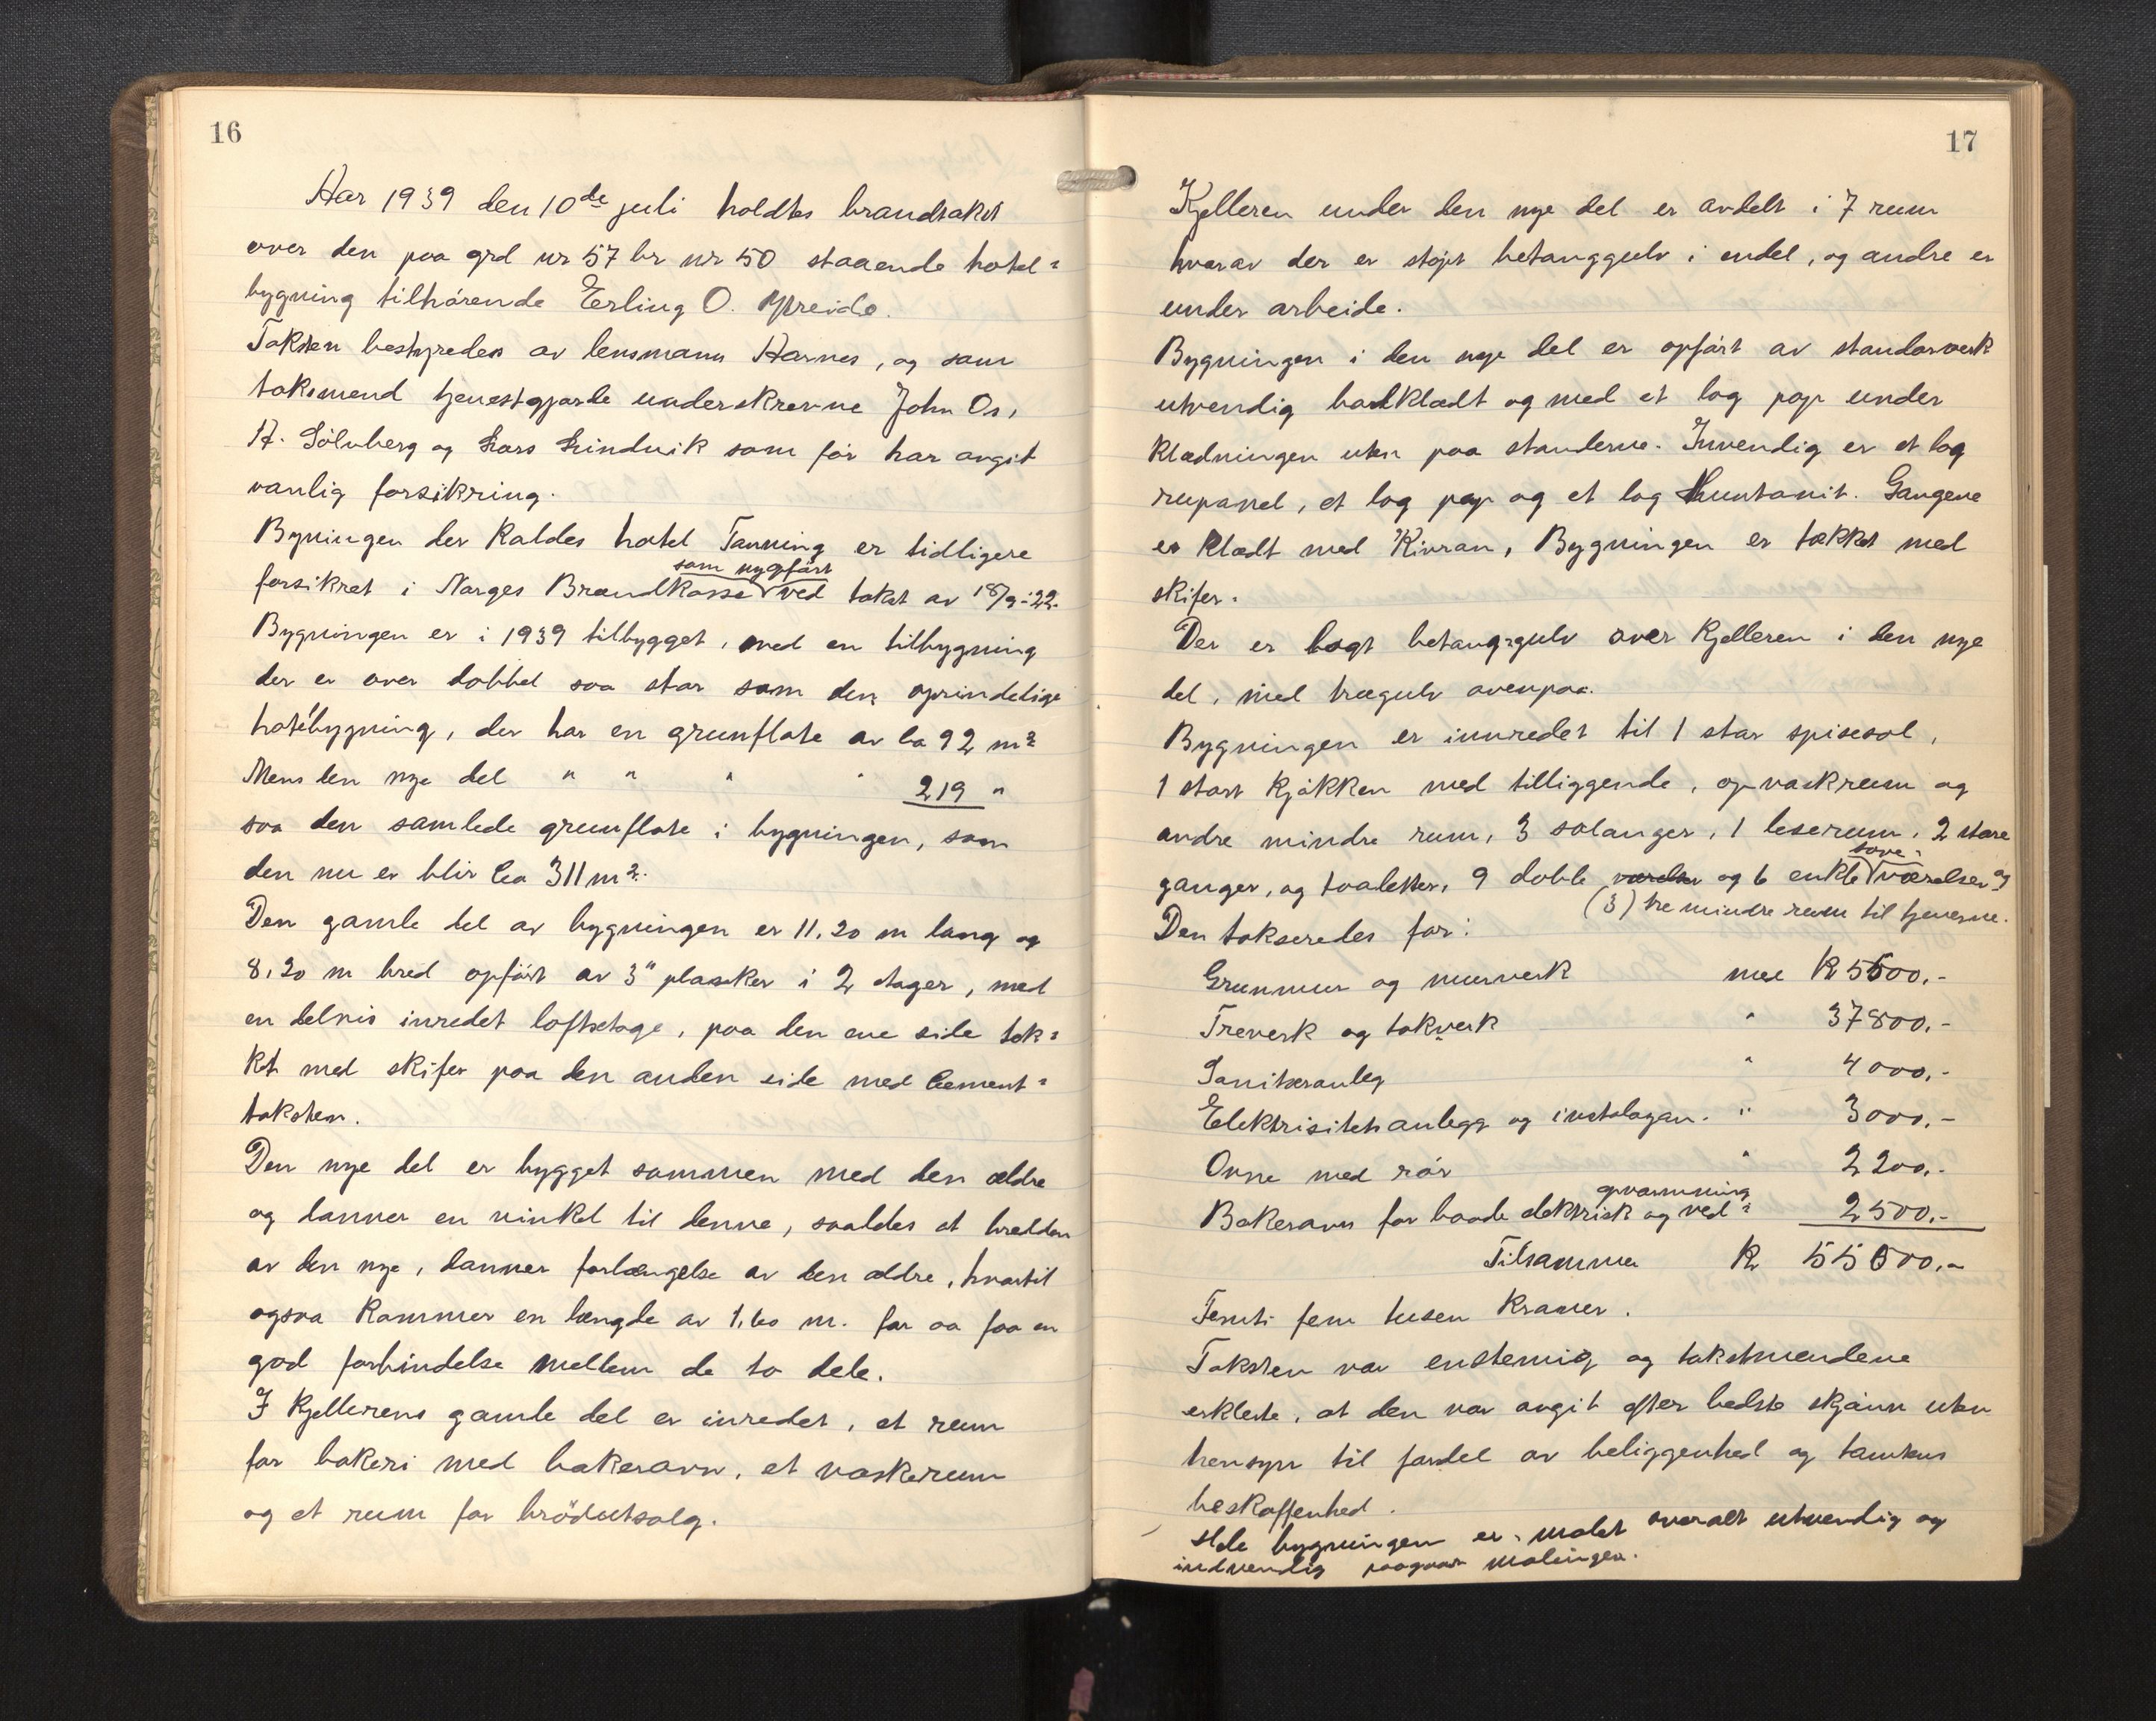 16
Aar 1939 den 10de juli holdtes brandtakst
over den paa grd nr 57 br nr 50 staaende hotel=
bygning tilhørende Erling O. Ypreide.
Taksten bestyredes av lensmann Aarnes, og som
taksmend tjenestgjorde underskrevne John Os,
A. Sølvberg og Lars Lindvik som før har avgit
vanlig forsikring.
Bygningen der kaldes hotel Tanning er tidligere
som nyopført
forsikret i Norges Brandkasse ved takst av 18/9-22.
Bygningen er i 1939 tilbygget, med en tilbygning
der er over dobbel saa stor som den oprindelige
hotelbygning, der har en grunflate av ca 92 m²
Mens den nye del " " " " 219 "
saa den samlede grunflate i bygningen, som
den nu er blir ca 311 m².
Den gamle del av bygningen er 11.20 m lang og
8,20 m bred opført av 3" planker i 2 etager, med
en delvis inredet loftsetage, paa den ene side tæk=
ket med skifer paa den anden side med cement=
taksten.
Den nye del er bygget sammen med den ældre
og danner en vinkel til denne, saaledes at bredden
av den nye, danner forlængelse av den ældre, hvortil
ogsaa kommer en længde av 1,60 m. for aa faa en
god forbindelse mellem de to dele.
I kjellerens gamle del er inredet, et rum
for bakeri med bakerovn, et vaskerum
og et rum for brödutsalg.
17
Kjelleren under den nye del er avdelt i 7 rum
hvorav der er støpt betonggulv i endel, og andre er
under arbeide.
Bygningen i den nye del er opført av standarverk
utvendig bordklædt og med et lag pap under
klædningen uten paa standerne. Invendig er et lag
rupanel, et lag pap og et lag Huntonit. Gangene
er klædt med Kivran, Bygningen er tækket med
skifer.
Der er lagt betong=gulv over kjelleren i den nye
del, med trægulv ovenpaa.
Bygningen er innredet til 1 stor spisesal,
1 stort kjøkken med tilliggende, opvaskrum og
andre mindre rum, 3 salonger, 1 leserum, 2 store
sove=
ganger, og toaletter, 9 doble værelser og 6 enkle værelser og
(3) tre mindre rum til tjenerne.
Den takseredes for:
Grunmur og murverk med Kr 5500,-
Treverk og takverk " 37800,-
Saniteranleg " 4000,-
Elektrisitetsanlegg og instalasjon. " 3000,-
Ovne med rør " 2200,-
opvarmning
Bakerovn for baade elektrisk og ved= 2500,-
Tilsammen Kr 55000,-
Femti fem tusen kroner.
Taksten var enstemig og takstmendene
erklerte, at den var avgit efter bedste skjønn uten
hensyn til fordel av beliggenhed og tomtens
beskaffenhed.
Hele bygningen er malet overalt utvendig og
indvendig malingen.